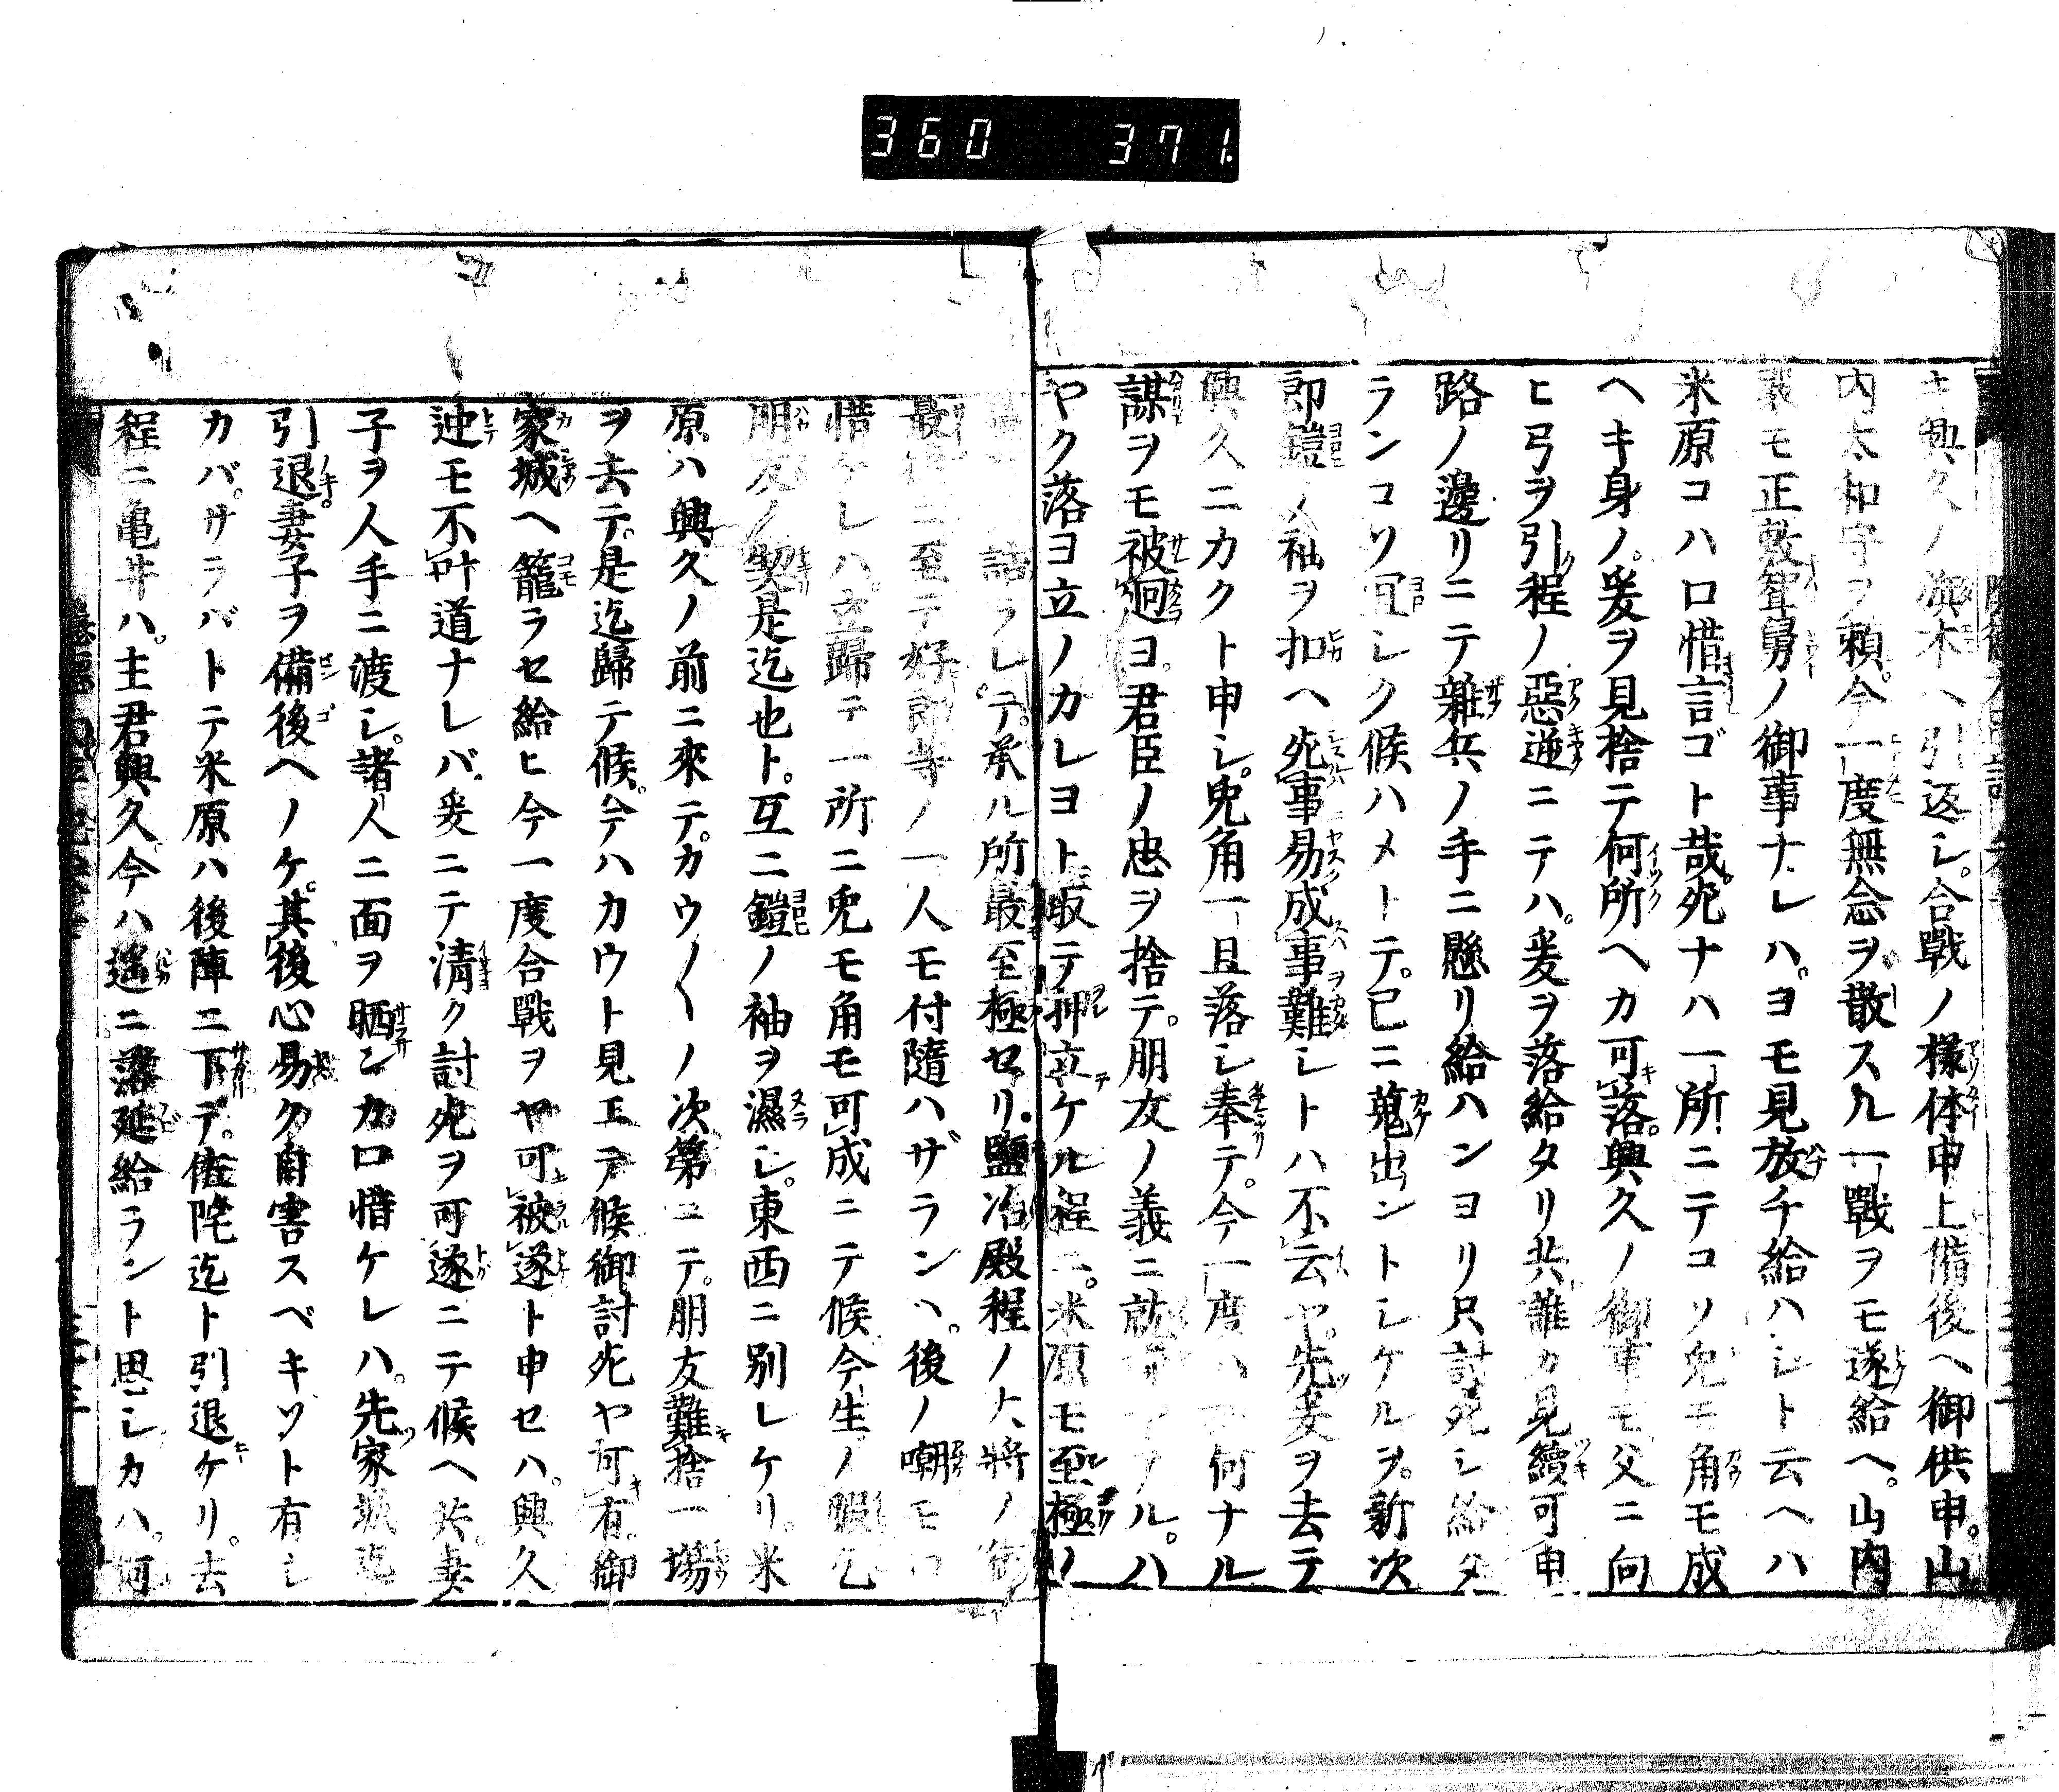 360 371.
キ興久ノ御木ヘ引返シ。合戰ノ樣体申上備後ヘ御供申。山
内大和守ヲ頼。今一度無念ヲ散ス九一戰ヲモ遂給ヘ。山内
モ正敷聟舅ノ御事ナレハ。ヨモ見放チ給ハシト云ヘハ
米原コハ口惜言ゴト哉死ナハ一所ニテコソ兎モ角モ成
ヘキ身ノ。爰ヲ見捨テ何所ヘカ可落。興久ノ御軍モ父ニ向
ヒ弓ヲ引程ノ惡逆ニテハ。爰ヲ落給タリ共。誰カ見續可申
路ノ邊リニテ雜兵ノ手ニ懸リ給ハンヨリ只討死シ給タ
ランコソ宜シク候ハメトテ。已ニ蒐出ントシケルヲ。新次
郎鎧ノ袖ヲ扣ヘ死事易成事難シトハ不云ヤ。先爰ヲ去テ
興久ニカクト申シ。兎角一且落シ奉テ。今一度ハ何ナル
謀ヲモ被廻ヨ。君臣ノ忠ヲ捨テ。朋友ノ義ニ就ナル。ハ
ヤク落ヨ立ノカレヨト取テ押立ケル程ニ。米原モ至極ノ
詰ラレテ。承ル所最至極セリ。鹽冶殿程ノ大將ノ御
最
至テ好郎等ノ一人モ付隨ハザランハ。後ノ嘲モ口
惜ケレハ。立歸テ一所ニ兎モ角モ可成ニテ候今生ノ暇乞
朋友ノ契是迄也ト。互ニ鎧ノ袖ヲ濕シ。東西ニ別レケリ。米
原ハ興久ノ前ニ來テ。カウ〳〵ノ次第ニテ。朋友難捨一場
ヲ去テ。是迄歸テ候。今ハカウト見エテ候御討死ヤ可有。御
家城ヘ籠ラセ給ヒ今一度合戰ヲヤ可被遂ト申セハ。興久
迚モ不叶道ナレバ。爰ニテ清ク討死ヲ可遂ニテ候ヘ共。妻
子ヲ人手ニ渡シ。諸人ニ面ヲ晒ンカ口惜ケレハ。先家城迄
引退。妻子ヲ備後ヘノケ。其後心易ク自害スベキソト有シ
カバ。サラバトテ米原ハ後陣ニ下テ。佐陀迄ト引退ケリ。去
程ニ亀井ハ。主君興久。今ハ遙ニ落延給ラント思シカハ。河